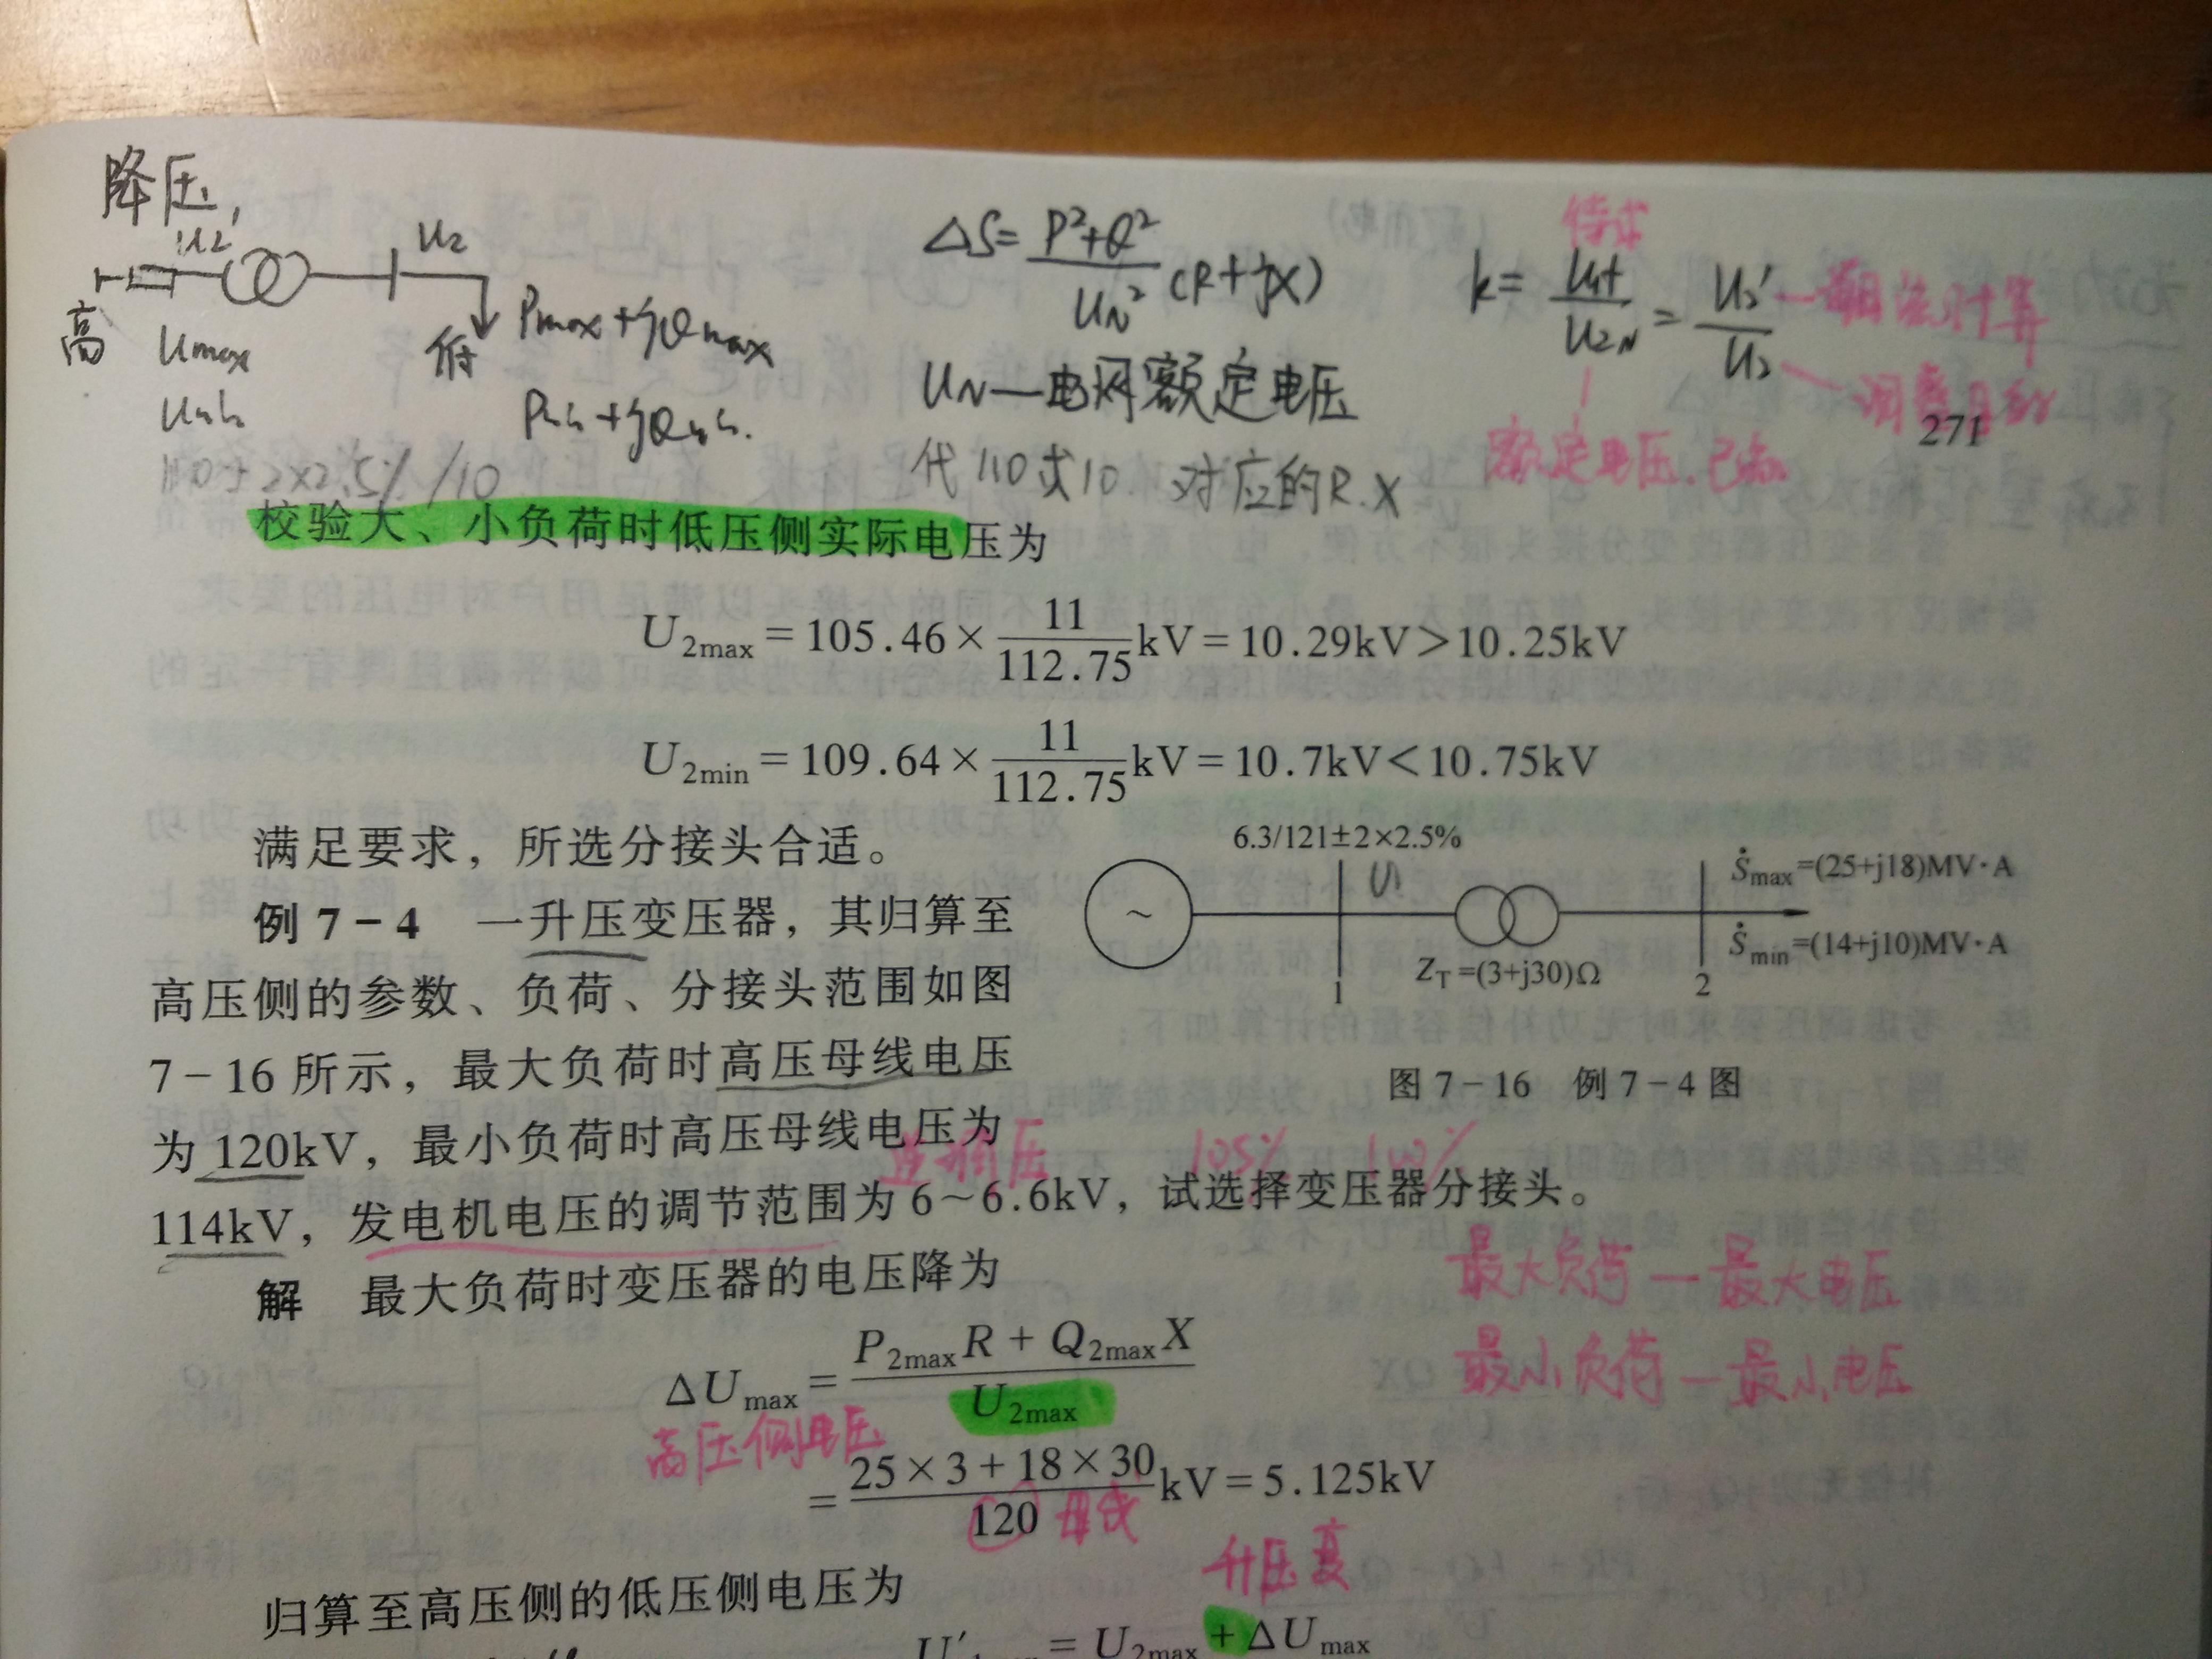 降压,
U2
U2
高
低
Umax
Pmax+jQmax
110±2×2.5%/10
ΔS= P²+Q² / UN² (R+jX)
UN—电网额定电压
代110或10. 对应的R.X
待求
k= U1t / U2N = U2′ / U2
—潮流计算
调整目标
额定电压.已知
271
校验大、小负荷时低压侧实际电压为
U2max = 105.46 × 11/112.75 kV = 10.29kV > 10.25kV
U2min = 109.64 × 11/112.75 kV = 10.7kV < 10.75kV
满足要求，所选分接头合适。
例 7-4 一升压变压器，其归算至
高压侧的参数、负荷、分接头范围如图
7-16 所示，最大负荷时高压母线电压
为 120kV，最小负荷时高压母线电压为
114kV，发电机电压的调节范围为 6～6.6kV，试选择变压器分接头。
6.3/121±2×2.5%
U1
~
1
ZT=(3+j30)Ω
2
Ṡmax=(25+j18)MV·A
Ṡmin=(14+j10)MV·A
图 7-16 例 7-4 图
105% 100%
最大负荷—最大电压
最小负荷—最小电压
解 最大负荷时变压器的电压降为
ΔUmax = P2maxR + Q2maxX / U2max
高压侧电压
= 25×3+18×30 / 120 kV = 5.125kV
母线
升压变
归算至高压侧的低压侧电压为
= U2max + ΔUmax